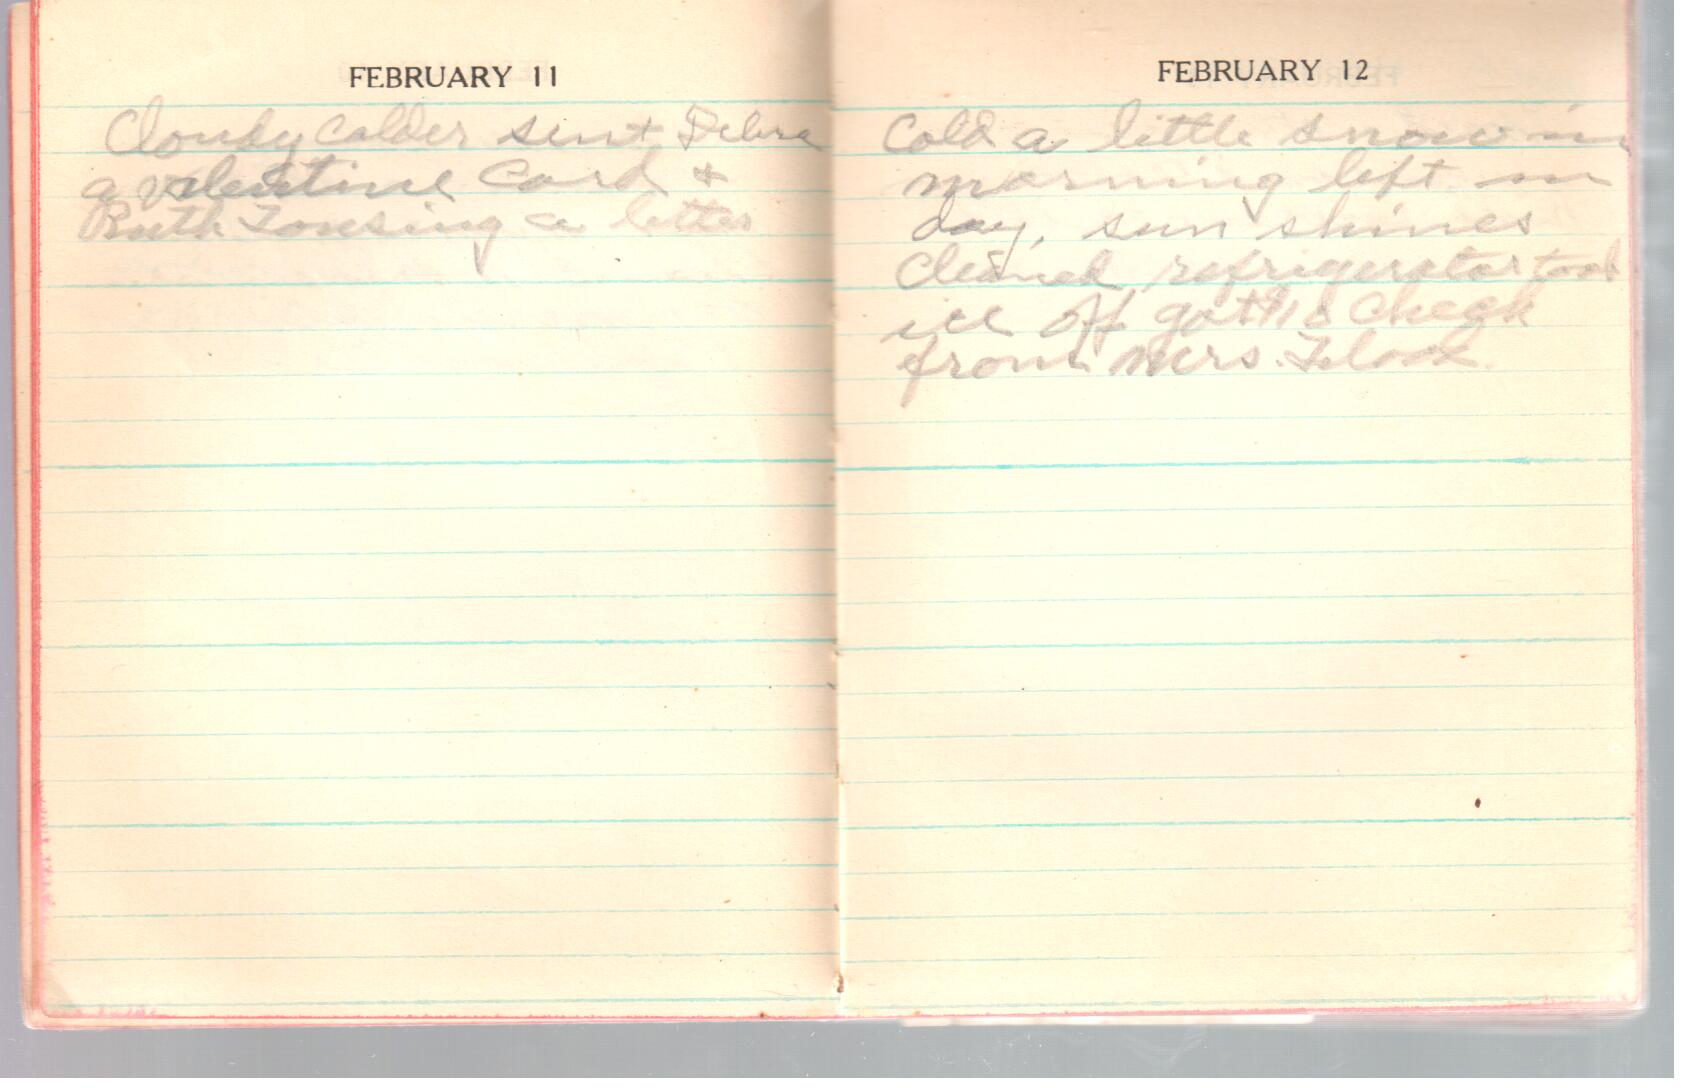 FEBRUARY 11
Cloudy colder sent Debra
a valentine card &
Ruth a letter
FEBRUARY 12
Cold a little snow in
morning left in
day, sun shines
Cleaned refrigerator took
ice off got check
from Mrs.